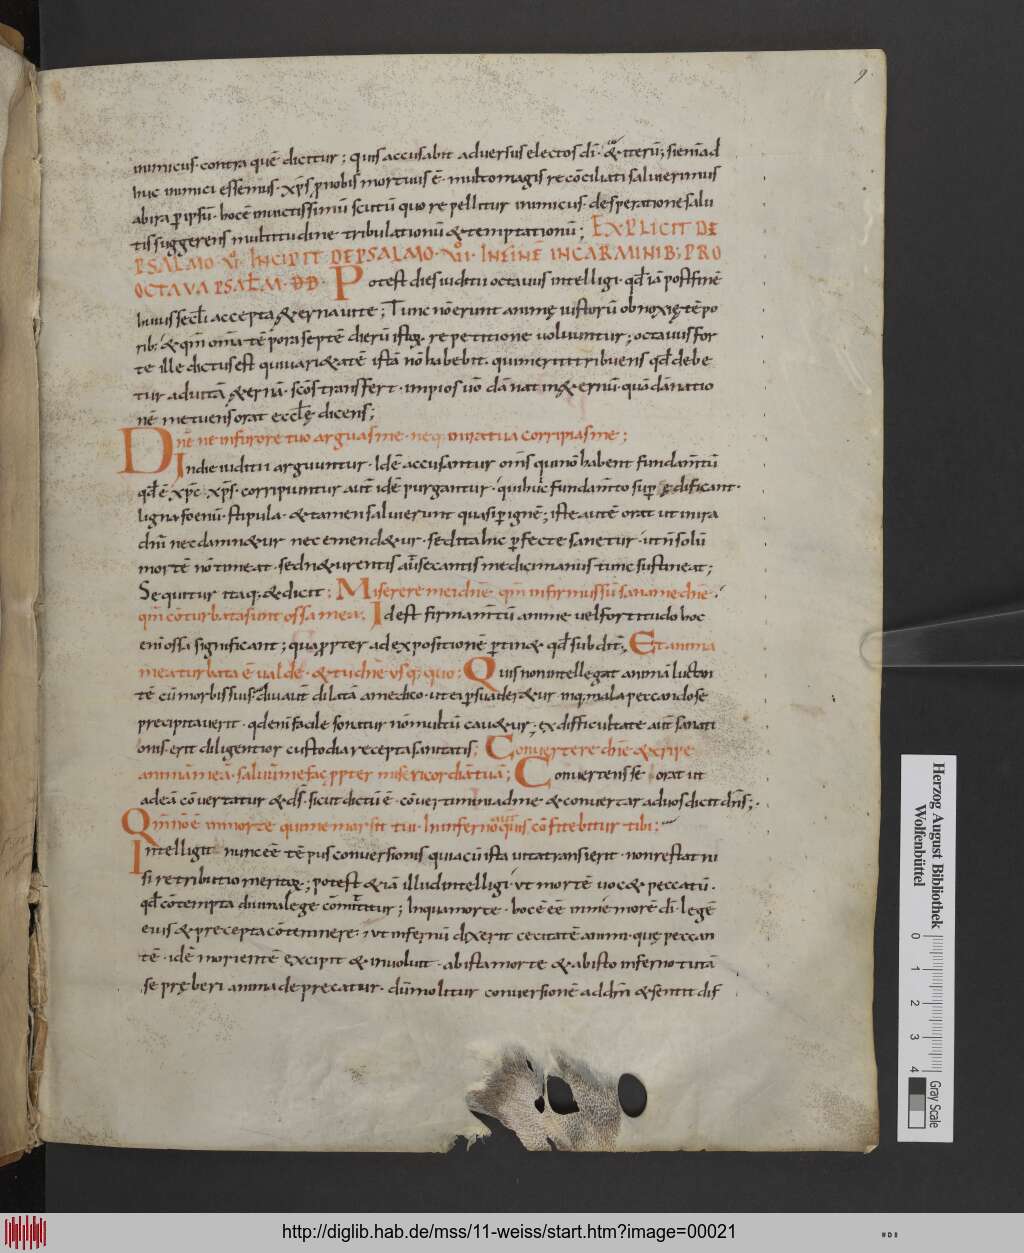 9.
inimicus· contra quē dicitur; quis accusabit adversus electos dī· & iterū; si enī ad
huc inimici essemus· xp̄s p nobis mortuus ē· multo magis recōciliati salui erimus
ab ira p ipsū· hoc ē inuictissimū scutū quo repellitur inimicus· desperatione salu
tis suggerens multitudine tribulationū & temptationū; EXPLICIT DE
PSALMO· INCIPIT DE PSALMO· VI· IN FINĒ IN CARMINIB; PRO
OCTAVA PSAŁM· DD· Potest dies iuditii octauus intelligi· qđ iā post finē
huius secłi accepta & erna uite; Tunc nō erunt animę iustorū obnoxię tēpo
rib; & qm̄ om̄a tēpora septē dierū istoꝝ repetitione uoluuntur; octauus for
te ille dictus est qui uari&atē istā nō habebit· qui meriti tribuens qđ debe
tur ad uitā & ernā· sc̄os transfert· impios uō dānat in & ernū· quā dānatio
nē metuens orat eccłę dicens;
Dn̄e ne in furore tuo arguas me· neq; in ira tua corripias me;
In die iuditii arguuntur· Idē accusantur om̄s qui nō habent fundam̄tū
qđ ē xp̄c xp̄s· corripiuntur aut̄ idē purgantur· qui huic fundam̄to sup ędificant·
ligna foenū· stipula· & tamen salui erunt quasi p ignē; iste autē orat ut in ira
dn̄i nec damn&ur nec emend&ur· sed ita hic pfecte sanetur· ut n̄ solū
mortē nō timeat· sed n& urentis aut̄ secantis medici manus tunc sustineat;
Sequitur itaq; & dicit; Miserere mei dn̄e qm̄ infirmus sū sana me dn̄e·
qm̄ cōturbata sunt ossa mea· Id est firmam̄tū anime uel fortitudo hoc
enī ossa significant; quapropter ad expositionē ptin& qđ subdit̄; Et anima
mea turbata ē ualde· & tu dn̄e usq; quo; Quis non intellegat animā luctan
tē cū morbis suis· diu aut̄ dilatā a medico· ut ei psuader&ur inq; mala peccando se
precipitauerit· qđ enī facile sanatur nō multū cau&ur· ex difficultate aut̄ sanati
onis· erit diligentior custodia recepta sanitatis; Conuertere dn̄e & eripe
animā meā· saluū me fac ppter misericordiā tuā; Conuertens se orat ut
ad eā cōuertatur & dš· sicut dictū ē· cōuertimini ad me & conuertar ad uos dicit dn̄s;
Qm̄ nō ē in morte qui memor sit tui· In inferno aut̄ quis cōfitebitur tibi;
Intelligit nunc eē tēpus conuersionis quia cū ista uita transierit· non restat ni
si retributio meritoꝝ; potest & iā illud intelligi· ut mortē uoc& peccatū·
qđ cōtempta diuina lege cōmittitur; In qua morte· hoc ē eē inmemorē dī· legē
eius & precepta cōtemnere; ut infernū dixerit cecitatē animi· quę peccan
tē· idē morientē excipit & inuoluit· ab ista morte & ab isto inferno tutā
se prę beri anima deprecatur· dū molitur conuersionē ad dn̄m & sentit dif
Herzog August Bibliothek
Wolfenbüttel
0 1 2 3 4
Gray Scale
http://diglib.hab.de/mss/11-weiss/start.htm?image=00021